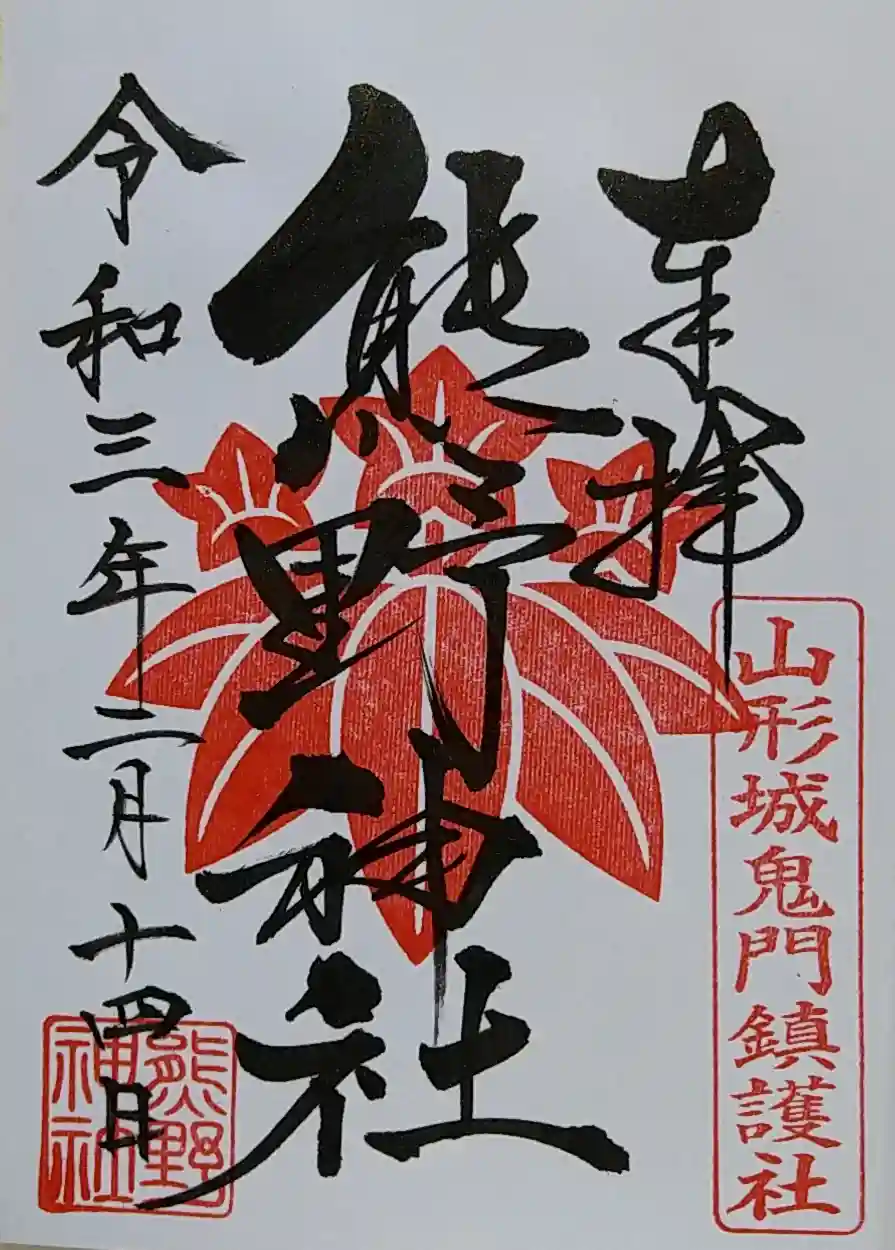 奉拝
山形城鬼門鎮護社
熊野神社
令和三年二月十四日
熊野
神社